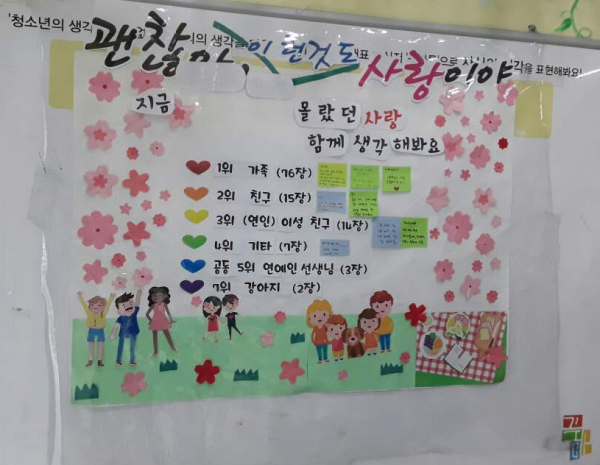 '청소년의 생각
의 생각을
으로
각을 표현해봐요!
괜찮아, 이런것도 사랑이야
지금 몰랐던 사랑
함께 생각 해봐요
1위 가족 (76장)
2위 친구 (15장)
3위 (연인) 이성 친구 (14장)
4위 기타 (7장)
공동 5위 연예인 선생님 (3장)
7위 강아지 (2장)